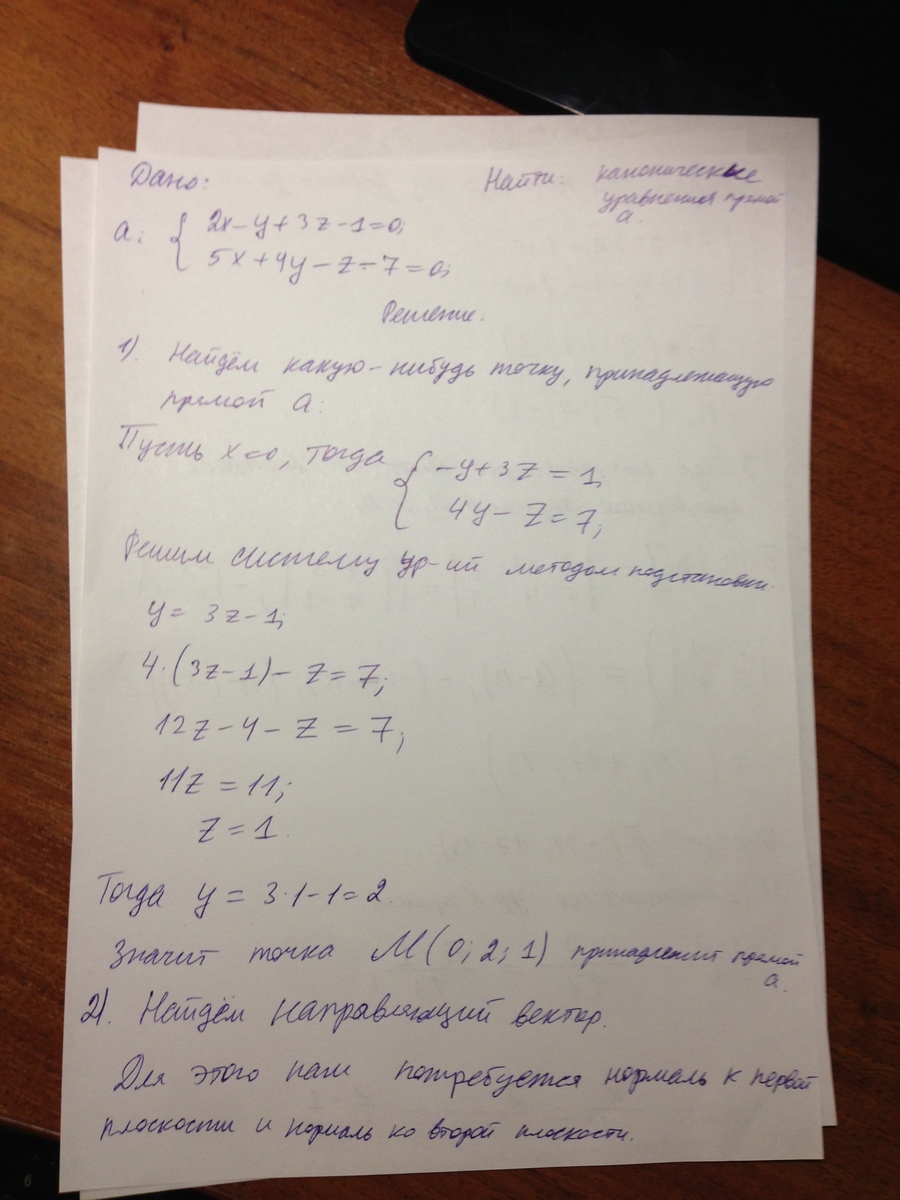 Дано:
Найти: канонические
уравнения прямой
a.
a: { 2x-y+3z-1=0;
5x+4y-z-7=0;
Решение.
1). Найдём какую-нибудь точку, принадлежащую
прямой a:
Пусть x=0, тогда { -y+3z=1,
4y-z=7;
Решим систему ур-ий методом подстановки.
y= 3z-1;
4·(3z-1)-z=7;
12z-4-z=7;
11z=11;
z=1.
Тогда y=3·1-1=2.
Значит точка M(0;2;1) принадлежит прямой
a.
2). Найдём направляющий вектор.
Для этого нам потребуется нормаль к первой
плоскости и нормаль ко второй плоскости.